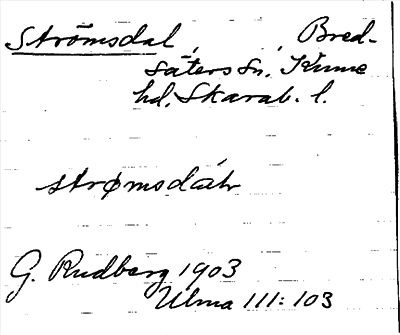 Strömsdal, , Bred-
säters sn, Kinne
hd, Skarab. l.
strømsdál
G. Rudberg 1903
Ulma 111: 103